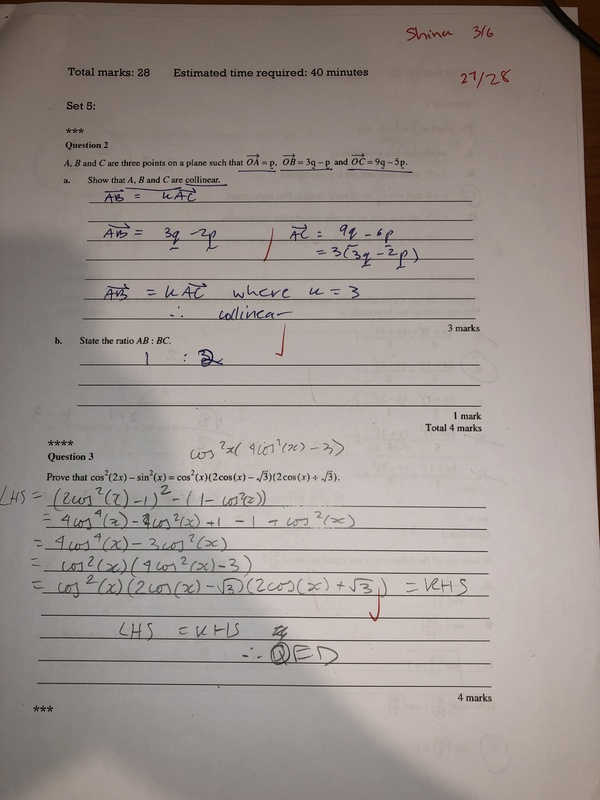 Shinu 3/6
Total marks: 28 Estimated time required: 40 minutes
27/28
Set 5:
***
Question 2
A, B and C are three points on a plane such that OA→ = p, OB→ = 3q – p and OC→ = 9q – 5p.
a. Show that A, B and C are collinear.
AB→ = kAC→
AB→ = 3q - 2p AC→ = 9q - 6p
= 3(3q - 2p)
AB→ = kAC→ where k = 3
∴ collinear
3 marks
b. State the ratio AB : BC.
1 : 2
1 mark
Total 4 marks
****
Question 3
cos²x(4cos²(x) - 3)
Prove that cos²(2x) – sin²(x) = cos²(x)(2cos(x) – √3)(2cos(x) + √3).
LHS = (2cos²(x) - 1)² - (1 - cos²(x))
= 4cos⁴(x) - 4cos²(x) + 1 - 1 + cos²(x)
= 4cos⁴(x) - 3cos²(x)
= cos²(x)(4cos²(x) - 3)
= cos²(x)(2cos(x) - √3)(2cos(x) + √3) = RHS
LHS = RHS
∴ QED
4 marks
***